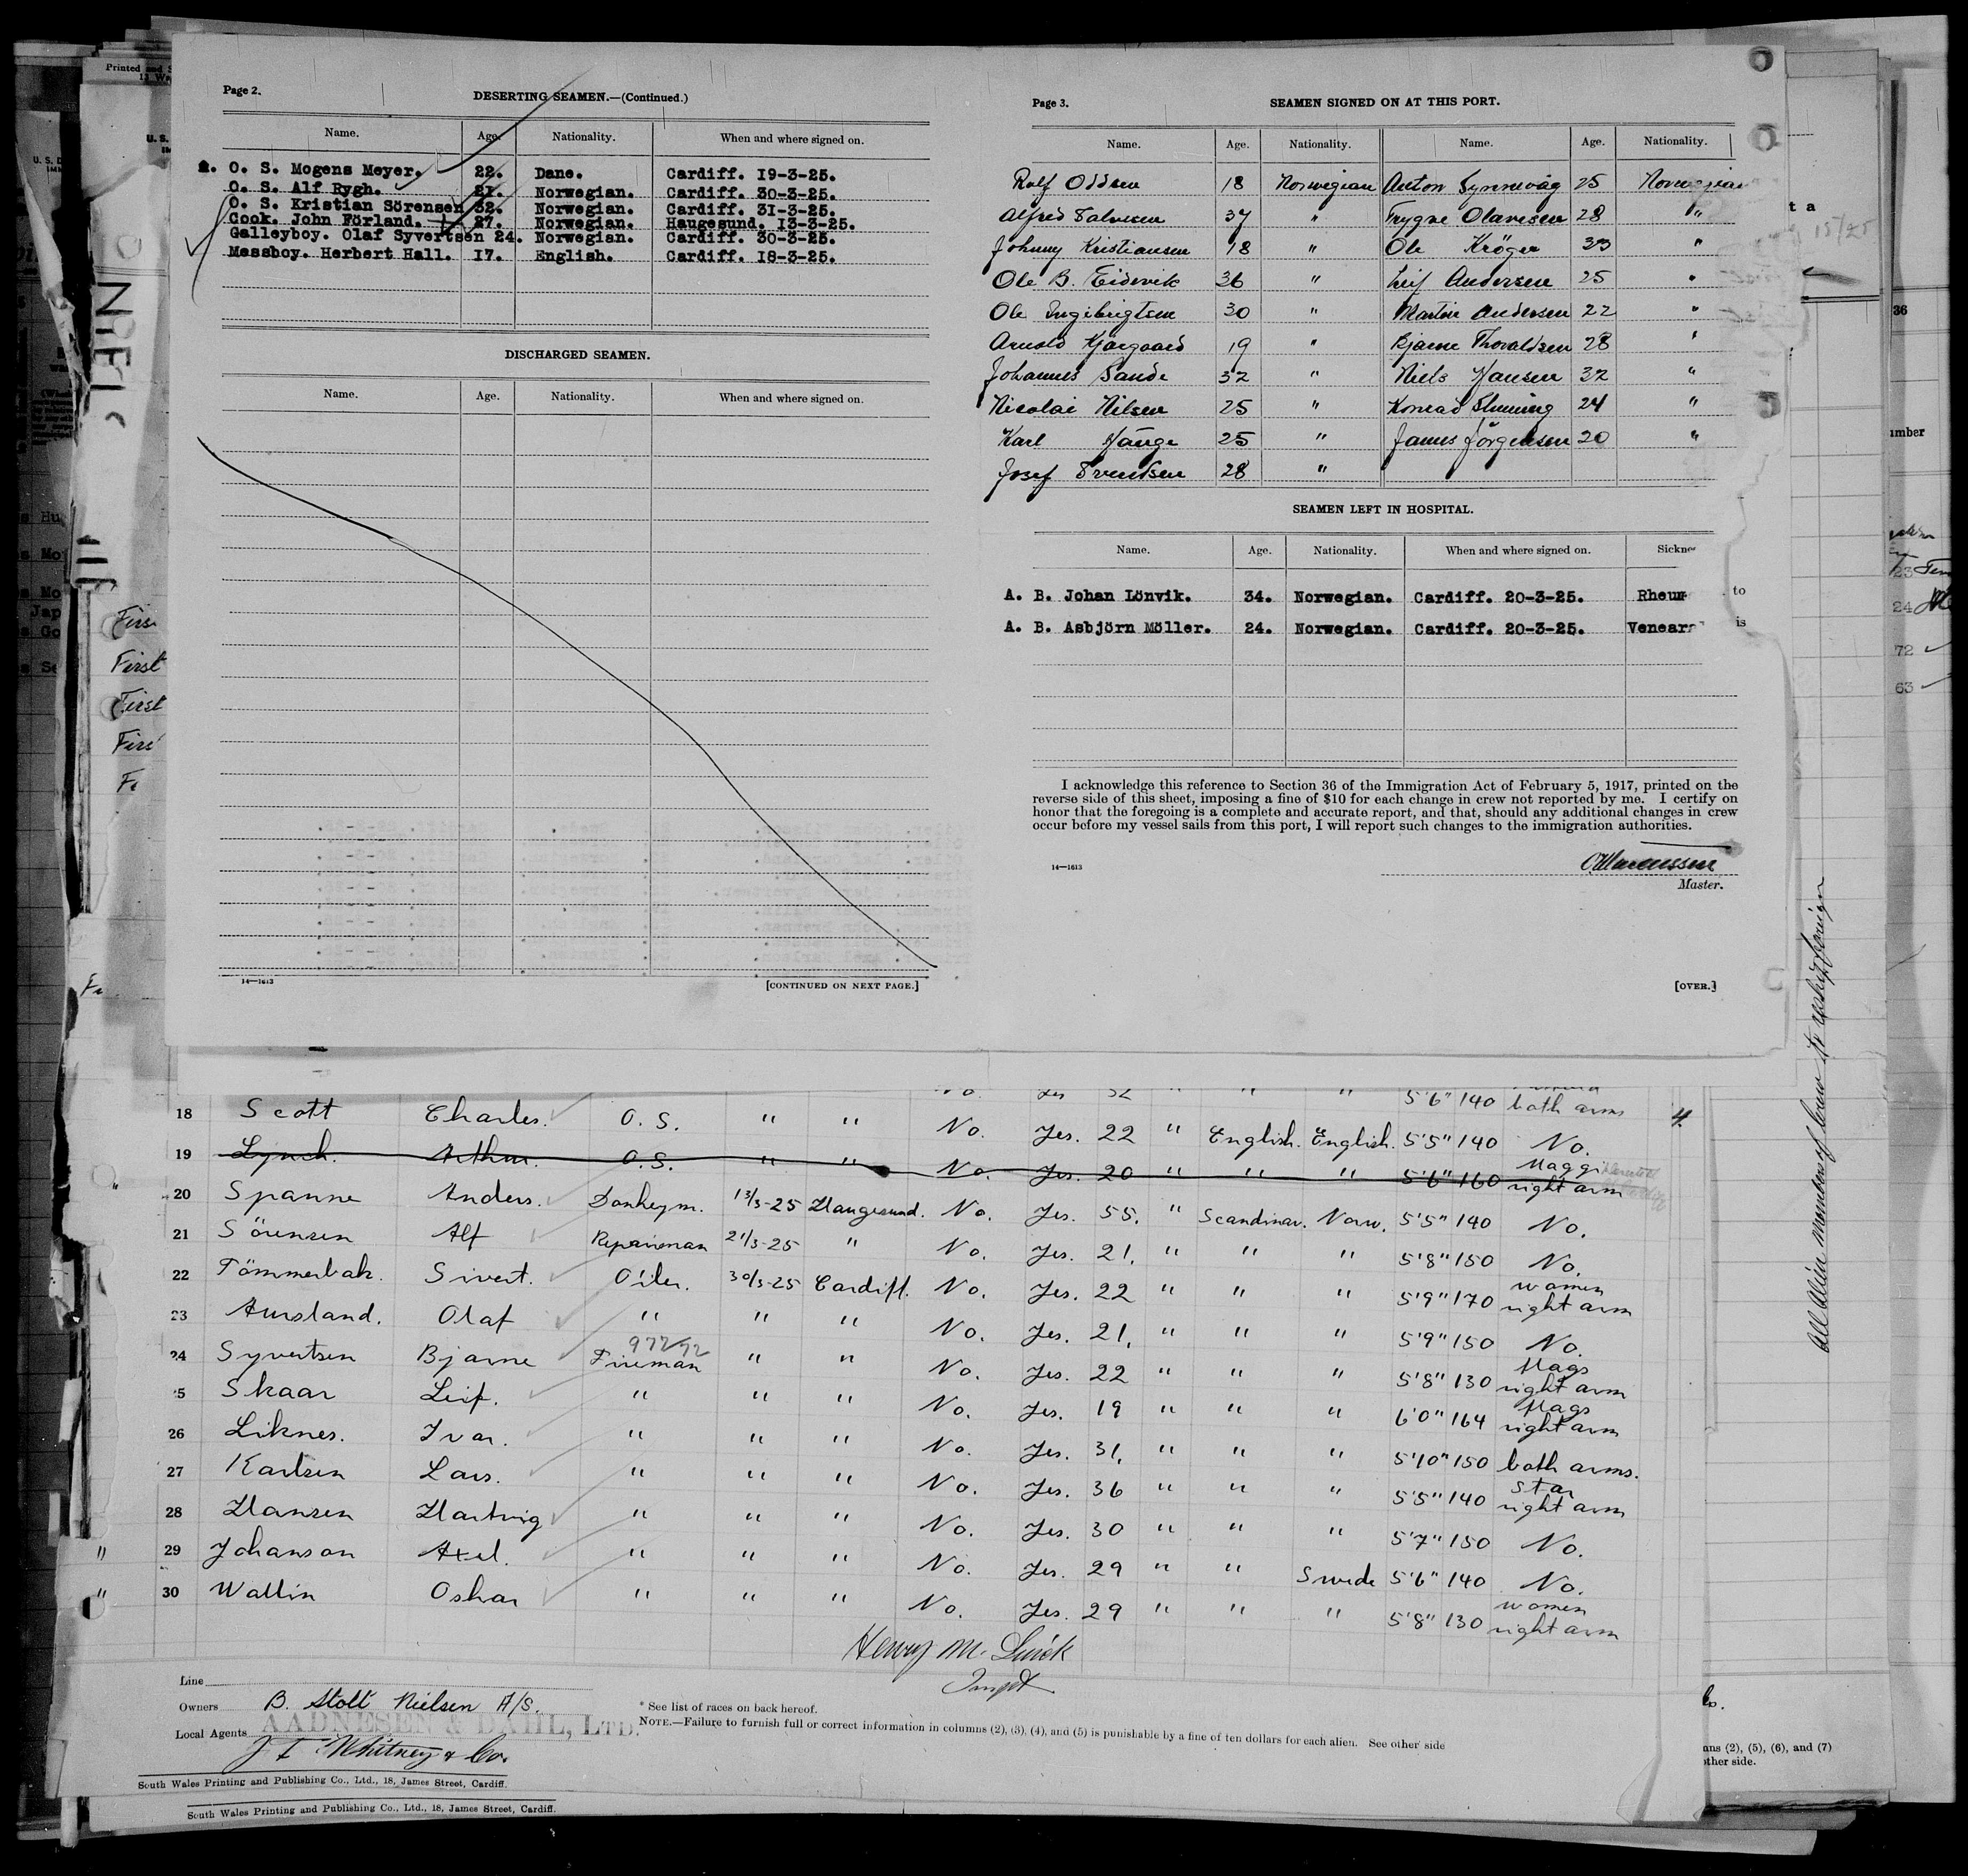 Page 2.
DESERTING SEAMEN.—(Continued.)
Name. Age. Nationality. When and where signed on.
O. S. Mogens Meyer. 22. Dane. Cardiff. 19-3-25.
O. S. Alf Rygh. 21. Norwegian. Cardiff. 30-3-25.
O. S. Kristian Sörensen 32. Norwegian. Cardiff. 31-3-25.
Cook. John Förland. 27. Norwegian. Haugesund. 13-3-25.
Galleyboy. Olaf Syvertsen 24. Norwegian. Cardiff. 30-3-25.
Messboy. Herbert Hall. 17. English. Cardiff. 18-3-25.
DISCHARGED SEAMEN.
Name. Age. Nationality. When and where signed on.
14—1613
[CONTINUED ON NEXT PAGE.]
Page 3.
SEAMEN SIGNED ON AT THIS PORT.
Name. Age. Nationality. Name. Age. Nationality.
Rolf Oddsen 18 Norwegian Anton Synnevåg 25 Norwegian
Alfred Salvesen 37 " Trygve Olavesen 28 "
Johnny Kristiansen 18 " Ole Kröger 33 "
Ole B. Eidsvik 36 " Leif Andersen 25 "
Ole Ingibrigtsen 30 " Martin Andersen 22 "
Arnold Kjærgaard 19 " Bjarne Thovaldsen 28 "
Johannes Sande 32 " Niels Hansen 32 "
Nicolai Nilsen 25 " Konrad 24 "
Karl Hauge 25 " James Jörgensen 20 "
Josef Svendsen 28 "
SEAMEN LEFT IN HOSPITAL.
Name. Age. Nationality. When and where signed on.
A. B. Johan Lönvik. 34. Norwegian. Cardiff. 20-3-25. Rheum
A. B. Asbjörn Möller. 24. Norwegian. Cardiff. 20-3-25.
I acknowledge this reference to Section 36 of the Immigration Act of February 5, 1917, printed on the
reverse side of this sheet, imposing a fine of $10 for each change in crew not reported by me. I certify on
honor that the foregoing is a complete and accurate report, and that, should any additional changes in crew
occur before my vessel sails from this port, I will report such changes to the immigration authorities.
14—1613
Master.
[OVER.]
5'6" 140 both arms
18 Scott Charles. O. S. " " No. Yes. 22 " English. English. 5'5" 140 No.
19 Lynch. Arthur. O.S. " " No. Yes. 20 " " " 5'6" 160 Maggi right arm
20 Spanne Anders. Donkeym. 13/3-25 Haugesund. No. Yes. 55. " Scandinav. Norw. 5'5" 140 No.
21 Sörensen Alf Repairman 21/3-25 " No. Yes. 21. " " " 5'8" 150 No.
22 Tömmerbak. Sivert. Oiler. 30/3-25 Cardiff. No. Yes. 22 " " " 5'9" 170 women right arm
23 Aursland. Olaf " " " No. Yes. 21. " " " 5'9" 150 No.
24 Syvertsen Bjarne Fireman " " No. Yes. 22 " " " 5'8" 130 flags right arm
5 Skaar Leif. " " " No. Yes. 19 " " " 6'0" 164 flags right arm
26 Liknes. Ivar. " " " No. Yes. 31. " " " 5'10" 150 both arms.
27 Karlsen Lars. " " " No. Yes. 36 " " " 5'5" 140 star right arm
28 Hansen Hartvig " " " No. Yes. 30 " " " 5'7" 150 No.
29 Johanson Axel. " " " No. Yes. 29 " " Swede 5'6" 140 No.
30 Wallin Oskar " " " No. Yes. 29 " " " 5'8" 130 women right arm
Line
Owners B. Stolt Nielsen A/S.
Local Agents AADNESEN & DAHL, LTD.
J F Whitney & Co.
* See list of races on back hereof.
NOTE.—Failure to furnish full or correct information in columns (2), (3), (4), and (5) is punishable by a fine of ten dollars for each alien. See other side
South Wales Printing and Publishing Co., Ltd., 18, James Street, Cardiff.
South Wales Printing and Publishing Co., Ltd., 18, James Street, Cardiff.
First
First
All Alien members of crew to reship foreign
(2), (5), (6), and (7)
other side.